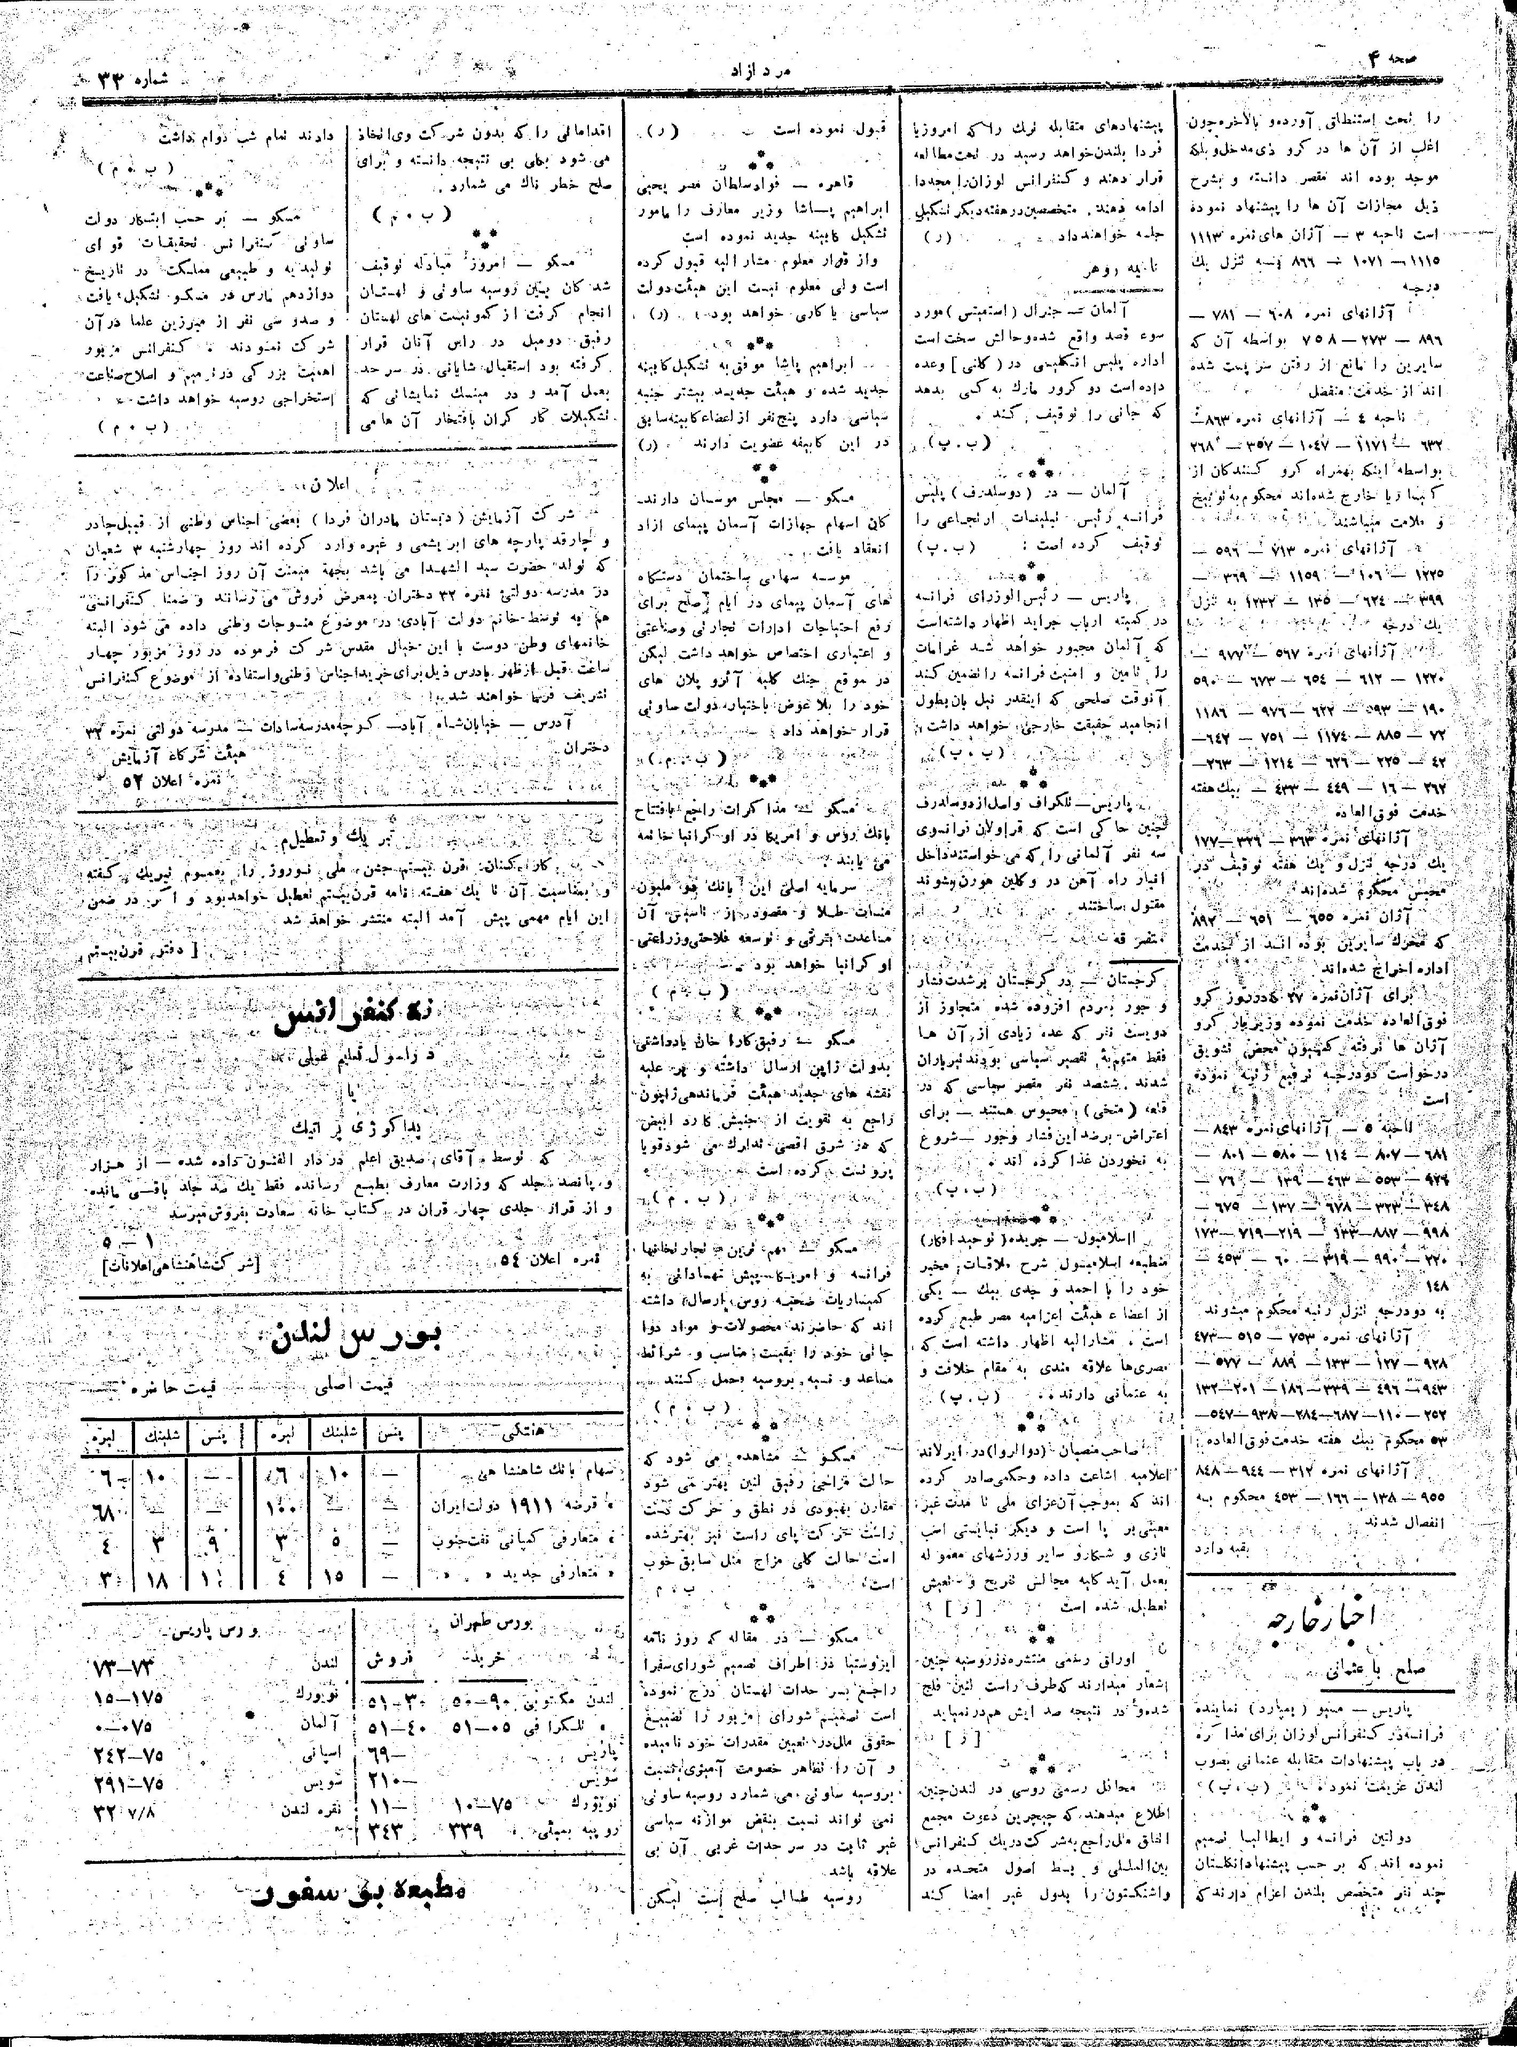 صفحه ۴
مرد ازاد
شماره ۳۳
را تحت استنطاق آورده و بالاخره چون
اغلب از آن ها در کرو ذی مدخل و بلکه
موجد بوده اند مقصر دانسته و بشرح
ذیل مجازات آن ها را پیشنهاد نموده
است ناحیه ۳ — آژان های نمره ۱۱۱۳
۱۱۱۵ — ۱۰۷۱ — ۸۶۶ وسه تنزل یك
درجه
آژانهای نمره ۶۰۸ — ۷۸۱ —
۸۹۶ — ۲۷۳ — ۷۵۸ بواسطه آن که
سایرین را مانع از رفتن سر پست شده
اند از خدمت منفصل
ناحیه ٤ — آژانهای نمره ۸۶۳ —
۶۳۲ — ۱۱۷۱ — ۱۰٤۷ — ۳۵۷ — ۲۶۸
بواسطه اینکه بهمراه کرو کنندکان از
کیساریا خارج شده‌اند محکوم به توبیخ
و ملامت میباشند
آژانهای نمره ۷۱۳ — ۵۹۶ —
۱۲۲۵ — ۱۰۶ — ۱۱۵۹ — ۳۶۹ —
۳۹۹ — ۶۲٤ — ۱۳۵ — ۱۲۳۲ به تنزل
یك درجه
آژانهای نمره ۵۶۷ — ۹۷۷ —
۱۲۲۰ — ۶۱۲ — ۶۵٤ — ۶۷۳ — ۵۹۰
۱۹۰ — ۵۹۳ — ۶۲۲ — ۹۷۶ — ۱۱۸۶
۷۲ — ۸۸۵ — ۱۱۷٤ — ۷۵۱ — ۶٤۲ —
٤۲ — ۲۲۵ — ۶۲۶ — ۱۲۱٤ — ۲۶۳ —
۲۶۲ — ۱۶ — ٤٤۹ — ٤۳۳ — بیك هفته
خدمت فوق العاده
آژانهای نمره ۳۶۳ — ۳۲۶ — ۱۷۷
یك درجه تنزل و یك هفته توقیف در
محبس محکوم شده‌اند
آژان نمره ۶۵۵ — ۶۵۱ — ۸۹۲
که محرك سایرین بوده اند از خدمت
اداره اخراج شده‌اند
برای آژان نمره ۲۷ که در روز کرو
فوق العاده خدمت نموده و زیر بار کرو
آژان ها نرفته کمیسیون محض تشویق
درخواست دو درجه ترفیع رتبه نموده
است
ناحیه ۵ — آژانهای نمره ۸٤۳ —
۶۸۱ — ۸۰۷ — ۱۱٤ — ۵۸۰ — ۸۰۱ —
۹۲۶ — ۵۵۳ — ٤۶۳ — ۱۳۹ — ۷۶ —
۳٤۸ — ۳۲۳ — ۶۷۸ — ۱۳۷ — ۶۷۵ —
۹۹۸ — ۸۸۷ — ۱۳۳ — ۲۱۹ — ۷۱۹ — ۱۷۳
۲۲۰ — ۹۹۰ — ۳۱۹ — ۶۰ — ٤۵۳ —
۱٤۸
به دو درجه تنزل رتبه محکوم میشوند
آژانهای نمره ۷۵۳ — ۵۱۵ — ٤۷۳
۹۲۸ — ۱۲۷ — ۱۳۳ — ۸۸۹ — ۵۷۷ —
۹٤۳ — ٤۹۶ — ۳۳۹ — ۱۸۶ — ۲۰۱ — ۱۳۲
۲۵۲ — ۱۱۰ — ۶۸۷ — ۲۸٤ — ۹۳۸ — ۵٤۷ —
۵۳ محکوم بیك هفته خدمت فوق العاده
آژانهای نمره ۳۱۲ — ۹٤٤ — ۸٤۸
۹۵۵ — ۱۳۸ — ۱۶۶ — ٤۵۳ محکوم به
انفصال شدند
بقیه دارد
اخبار خارجه
صلح با عثمانی
پاریس — مسیو (بمپارد) نماینده
فرانسه در کنفرانس لوزان برای مذاکره
در باب پیشنهادات متقابله عثمانی بصوب
لندن عزیمت نمود (ب . پ)
دولتین فرانسه و ایطالیا تصمیم
نموده اند که بر حسب پیشنهاد انگلستان
چند نفر متخصص بلندن اعزام دارند که
پیشنهادهای متقابله ترك را که امروز یا
فردا بلندن خواهد رسید در تحت مطالعه
قرار دهند و کنفرانس لوزان را مجددا
ادامه دهند . متخصصین در هفته دیکر تشکیل
جلسه خواهند داد (ر)
ناحیه روهر
آلمان — جنرال (استمبتس) مورد
سوء قصد واقع شده و حالش سخت است
اداره پلیس انکلیسی در (کلنی) وعده
داده است دو کرور مارك به کسی بدهد
که جانی را توقیف کند .
(ب . پ)
آلمان — در (دوسلدرف) پلیس
فرانسه رئیس تبلیغات ارتجاعی را
توقیف کرده است : (ب . پ)
پاریس — رئیس الوزرای فرانسه
در کمیته ارباب جراید اظهار داشته است
که آلمان مجبور خواهد شد غرامات
را تامین و امنیت فرانسه را تضمین کند
آنوقت صلحی که اینقدر نیل بان بطول
انجامید حقیقت خارجی خواهد داشت
(ب . پ)
پاریس — تلکراف واصل از دوسلدرف
چنین حاکی است که قراولان فرانسوی
سه نفر آلمانی را که می خواستند داخل
انبار راه آهن در وکلین هورن بشوند
مقتول ساختند
متفرقه
کرجستان — در کرجستان بر شدت فشار
و جور بمردم افزوده شده متجاوز از
دویست نفر که عده زیادی از آن ها
فقط متهم به تقصیر سیاسی بودند تیرباران
شدند ششصد نفر مقصر سیاسی که در
قلعه (متخی) محبوس هستند — برای
اعتراض بر ضد این فشار و جور — شروع
به نخوردن غذا کرده اند .
(ب . پ)
اسلامبول — جریده (توحید افکار)
منطبعه اسلامبول شرح ملاقات مخبر
خود را با احمد و جدی بیك — یکی
از اعضاء هیئت اعزامیه مصر طبع کرده
است . مشارالیه اظهار داشته است که
مصری‌ها علاقه مندی به مقام خلافت و
به عثمانی دارند (ب . پ)
صاحب منصبان (دوالروا) در ایرلاند
اعلامیه اشاعت داده و حکمی صادر کرده
اند که بموجب آن عزای ملی تا مدت غیر
معینی بر پا است و دیکر نبایستی اسب
تازی و شکار و سایر ورزشهای معموله
بعمل آید کلیه مجالس تفریح و تعیش
تعطیل شده است [ر]
اوراق رخمی منتشره در روسیه چنین
اشعار میدارند که طرف راست لنین فلج
شده و در نتیجه صدایش هم در نمیاید
[ر]
محافل رسمی روسی در لندن چنین
اطلاع میدهند که چیچرین دعوت مجمع
اتفاق ملل راجع به شرکت در یك کنفرانس
بین المللی و بسط اصول متحده در
واشنکتون را بدول غیر امضا کنند
قبول نموده است (ر)
قاهره — فواد سلطان مصر یحیی
ابراهیم پاشا وزیر معارف را مامور
تشکیل کابینه جدید نموده است
و از قرار معلوم مشارالیه قبول کرده
است ولی معلوم نیست این هیئت دولت
سیاسی یا کاری خواهد بود (ر)
ابراهیم پاشا موفق به تشکیل کابینه
جدید شده و هیئت جدید بیشتر جنبه
سیاسی دارد پنج نفر از اعضاء کابینه سابق
در این کابینه عضویت دارند (ر)
مسکو — مجلس موسسان دارند
کان اسهام جهازات آسمان پیمای ازاد
انعقاد یافت
موسسه سهامی ساختمان دستکاه
های آسمان پیمای در ایام صلح برای
رفع احتیاجات ادارات تجارتی و صناعتی
و اعتباری اختصاص خواهد داشت لیکن
در موقع جنك کلیه آئرو پلان های
خود را بلاعوض باختیار دولت ساوتی
قرار خواهد داد
(ب . م)
مسکو — مذاکرات راجع بافتتاح
بانك روس و امریکا در اوکرانیا خاتمه
می یابند
سرمایه اصلی این بانك دو ملیون
منات طلا و مقصود از تاسیس آن
مساعدت بترقی و توسعه فلاحتی و زراعتی
اوکرانیا خواهد بود
(ب . م)
مسکو — رفیق کارا خان یادداشتی
بدولت ژاپن ارسال داشته و بر علیه
نقشه های جدید هیئت فرماندهی ژاپون
راجع به تقویت از جنبش کارد ابیض
که در شرق اقصی تدارك می شود قویا
پروتست کرده است
(ب . م)
مسکو — مهم ترین تجارتخانها
فرانسه و امریکا پیش نهاداتی به
کمیساریات صحیه روس ارسال داشته
اند که حاضرند محصولات و مواد دوا
جاتی خود را بقیمت مناسب و شرائط
مساعد و نسیه بروسیه حمل کنند
(ب . م)
مسکو — مشاهده می شود که
حالت مزاجی رفیق لنین بهتر می شود
مقارن بهبودی در نطق و حرکت دست
راست حرکت پای راست نیز بهتر شده
است حالت کلی مزاج مثل سابق خوب
است ب . م
مسکو — در مقاله که روز نامه
ایزوستیا در اطراف تصمیم شورای سفرا
راجع بسر حدات لهستان درج نموده
است تصمیم شورای مزبور را تضییع
حقوق ملل در تعیین مقدرات خود نامیده
و آن را تظاهر خصومت آمیزی نسبت
بروسیه ساوتی می شمارد روسیه ساوتی
نمی تواند نسبت بنقض موازنه سیاسی
غیر ثابت در سر حدات غربی آن بی
علاقه باشد
روسیه طالب صلح است لیکن
اقداماتی را که بدون شرکت وی اتخاذ
می شود بکلی بی نتیجه دانسته و برای
صلح خطر ناك می شمارد .
(ب . م)
مسکو — امروز مبادله توقیف
شدکان بین روسیه ساوتی و لهستان
انجام کرفت از کمونیست های لهستان
رفیق دومبل در راس آنان قرار
کرفته بود استقبال شایانی در سر حد
بعمل آمد و در مینسك نمایشاتی که
تشکیلات کار کران بافتخار آن ها می
دارند تمام شب دوام داشت
(ب . م)
مسکو — بر حسب ابتکار دولت
ساوتی کنفرانس تحقیقات قوای
تولیدیه و طبیعی مملکت در تاریخ
دوازدهم مارس در مسکو تشکیل یافت
و صدو سی نفر از مبرزین علما در آن
شرکت نمودند . کنفرانس مزبور
اهمیت بزرکی در ترمیم و اصلاح صناعت
استخراجی روسیه خواهد داشت
(ب . م)
اعلان
شرکت آزمایش (دبستان مادران فردا) بعضی اجناس وطنی از قبیل چادر
و چارقد پارچه های ابریشمی و غیره وارد کرده اند روز چهارشنبه ۳ شعبان
که تولد حضرت سید الشهدا می باشد بجهة میمنت آن روز اجناس مذکور را
در مدرسه دولتی نمره ۳۲ دختران بمعرض فروش می رساند و ضمنا کنفرانسی
هم به توسط خانم دولت آبادی در موضوع منسوجات وطنی داده می شود البته
خانمهای وطن دوست با این خیال مقدس شرکت فرموده در روز مزبور چهار
ساعت قبل از ظهر بادرس ذیل برای خرید اجناس وطنی و استفاده از موضوع کنفرانس
تشریف فرما خواهند شد
آدرس — خیابان شاه آباد — کوچه مدرسه سادات — مدرسه دولتی نمره ۳۲
دختران
هیئت شرکاء آزمایش
نمره اعلان ۵۲
تبریك و تعطیل
کارکنان قرن بیستم جشن ملی نوروز را بعموم تبریك گفته
و بمناسبت آن تا یك هفته نامه قرن بیستم تعطیل خواهد بود و اکر در ضمن
این ایام مهمی پیش آمد البته منتشر خواهد شد
[دفتر قرن بیستم
نه کنفرانس
در اصول تعلیم عملی
یا
پداکوژی پراتیك
که توسط آقای صدیق اعلم در دار الفنون داده شده — از هزار
و پانصد جلد که وزارت معارف بطبع رسانده فقط یك صد جلد باقی مانده
و از قرار جلدی چهار قران در کتاب خانه سعادت بفروش میرسد
۱ — ۵
نمره اعلان ۵٤ [شرکت شاهنشاهی اعلانات]
بورس لندن
قیمت اصلی قیمت حاضره
هفتکی پنس شلینك لیره پنس شلینك لیره
سهام بانك شاهنشاهی — ۱۰ ۶ — ۱۰ ۶
« قرضه ۱۹۱۱ دولت ایران — — ۱۰۰ — — ۶۸
« متعارفی کمپانی نفت جنوب — ۵ ۳ ۹ ۳ ٤
« متعارفی جدید « « — ۱۵ ٤ ۱ ۱۸ ۳
بورس طهران
خرید فروش
لندن مکتوبی ۹۰—۵۰ ۳۰—۵۱
« تلکرافی ۰۵—۵۱ ٤۰—۵۱
پاریس —۶۹
سویس —۲۱۰
نویورك ۷۵—۱۰ —۱۱
روپیه بمبئی ۳۳۹ ۳٤۳
بورس پاریس
لندن ۷۳—۷۳
نویورك ۱۷۵—۱۵
آلمان ۰۷۵—۰
اسپانی ۷۵—۲٤۲
سویس ۷۵—۲۹۱
نقره لندن ۳۲ ۷/۸
مطبعه بوسفور